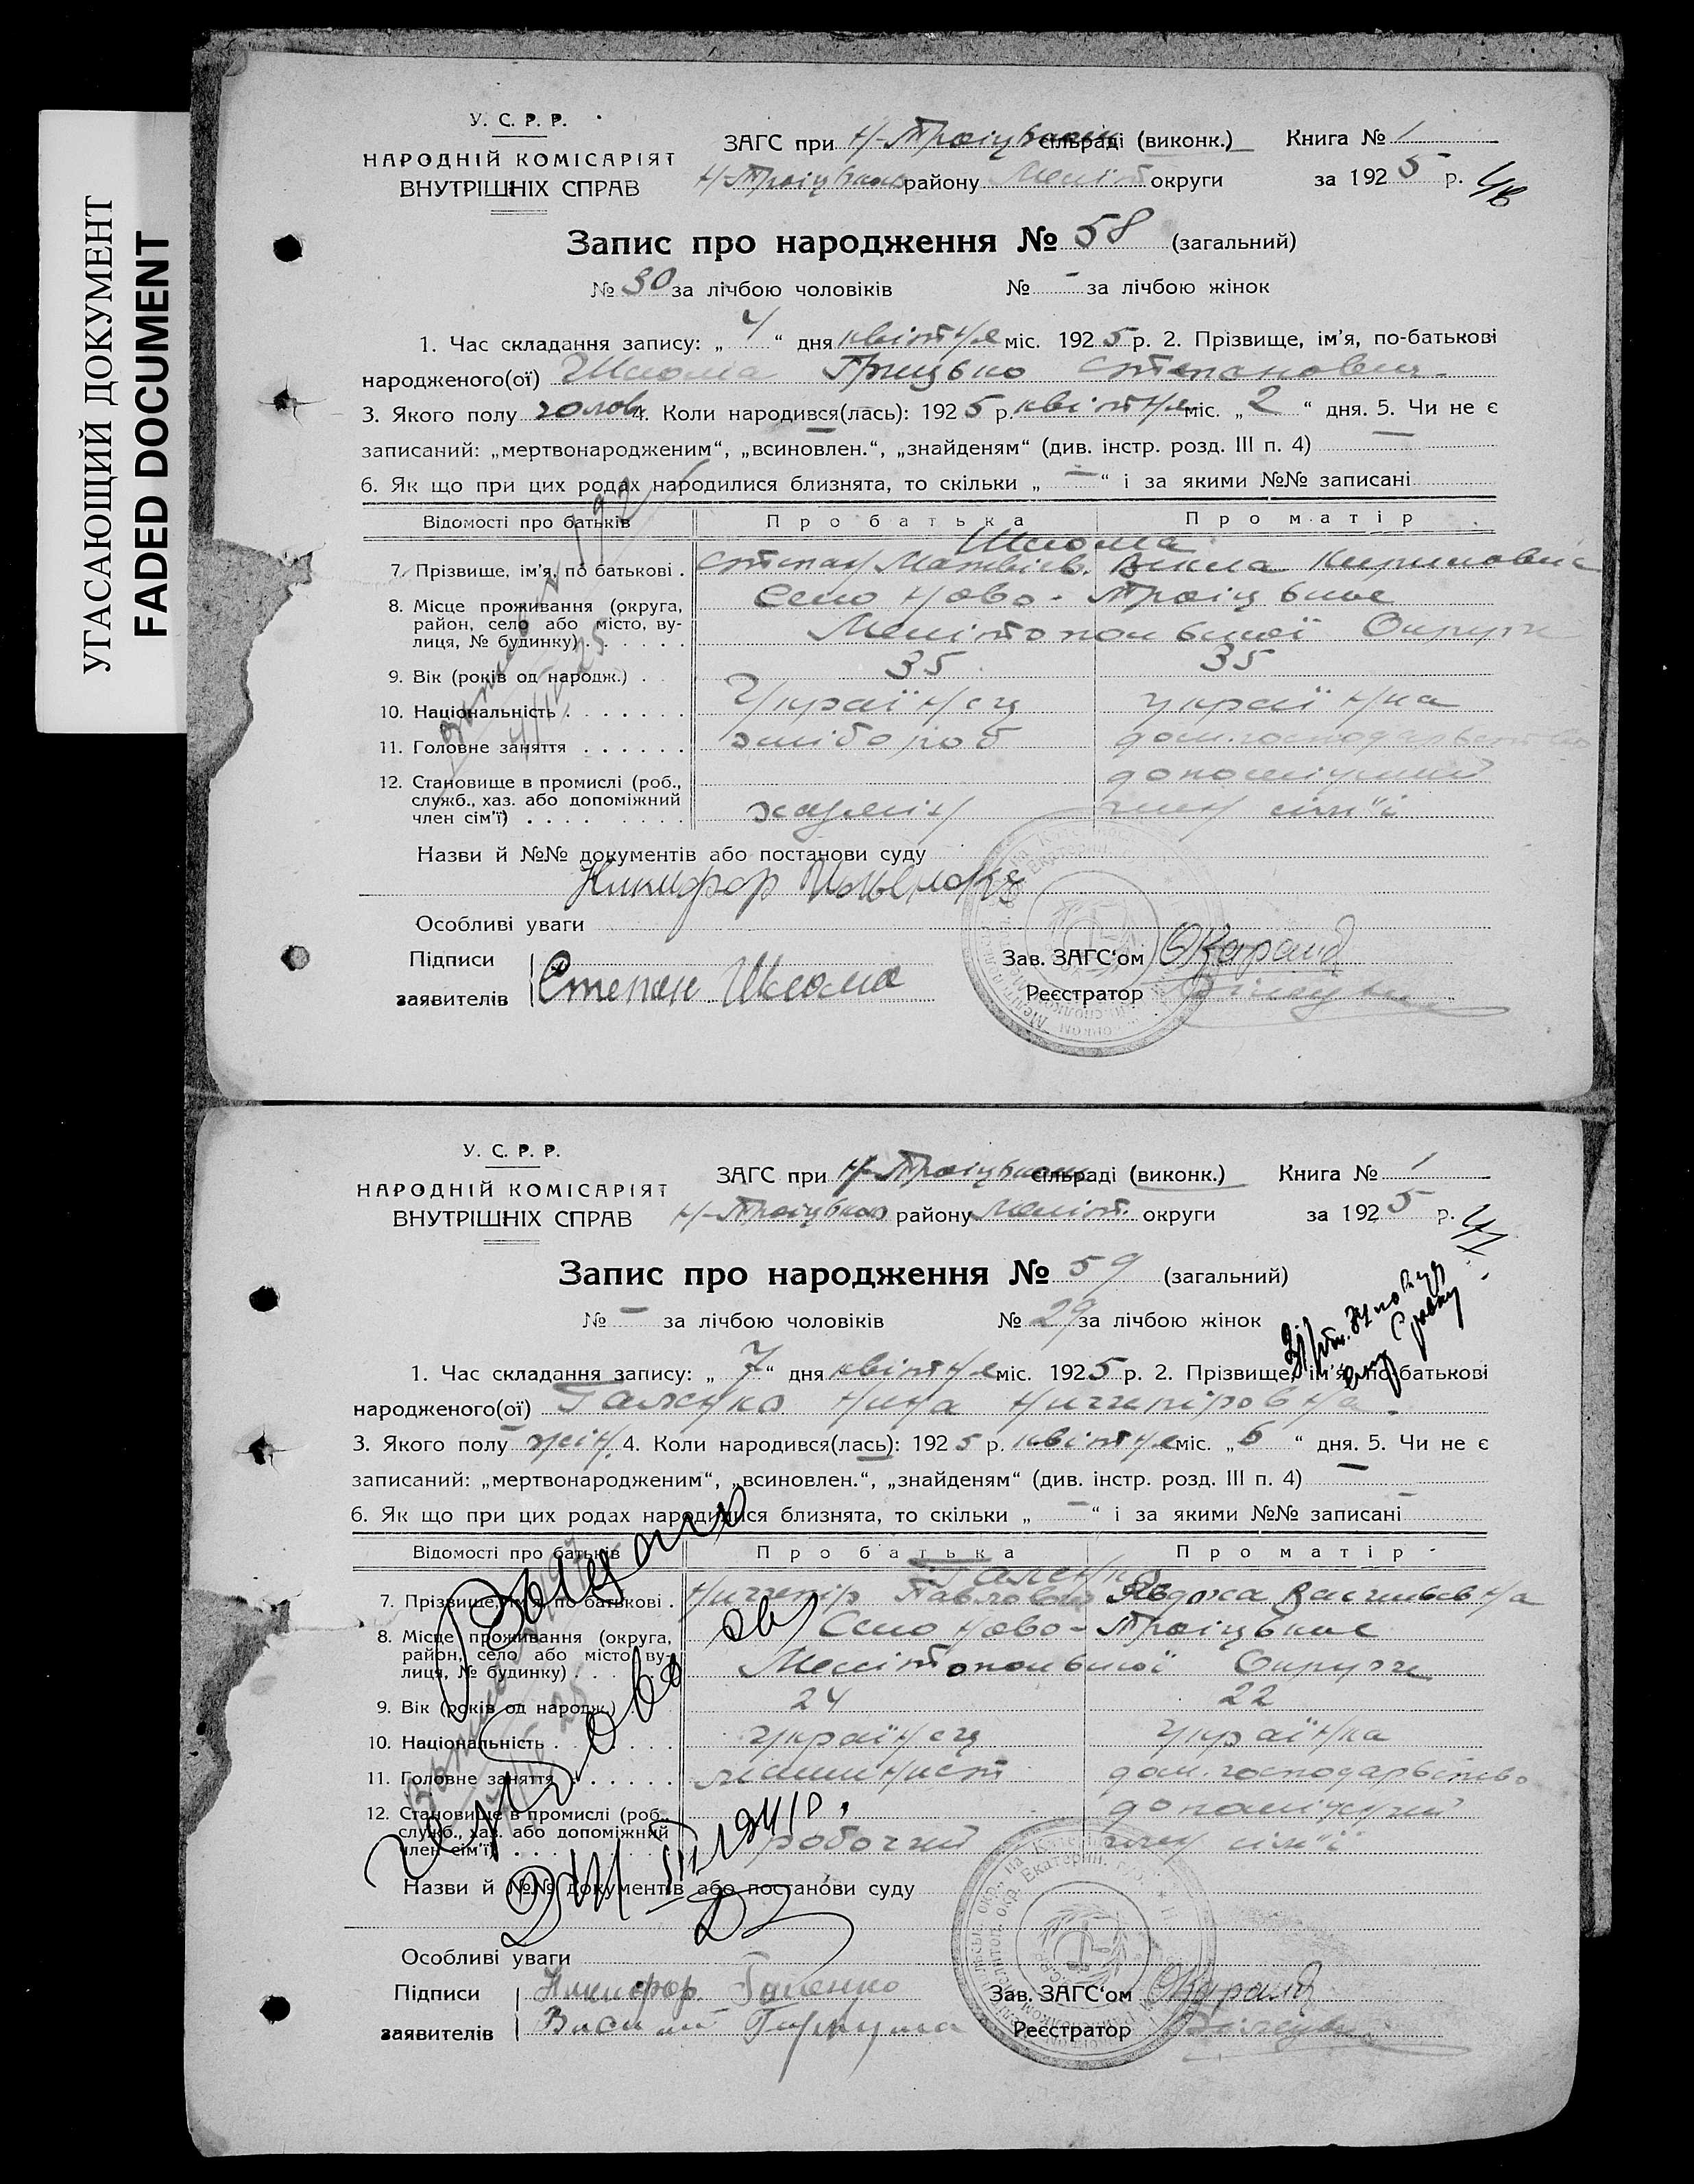 УГАСАЮЩИЙ ДОКУМЕНТ
FADED DOCUMENT
У. С. Р. Р.
НАРОДНІЙ КОМІСАРІЯТ
ВНУТРІШНІХ СПРАВ
ЗАГС при Н-Троіцьком сільраді (виконк.)
Н-Троіцьком району Меліт округи
Книга № 1
за 1925 р.
Запис про народження № 58 (загальний)
№ 30 за лічбою чоловіків № - за лічбою жінок
1. Час складання запису: „ 4 “ дня квітня міс. 1925 р. 2. Прізвище, ім’я, по-батькові
народженого(ої) Шкома Грицько Степанович
3. Якого полу чолов. 4. Коли народився(лась): 1925 р. квітня міс. „ 2 “ дня. 5. Чи не є
записаний: „мертвонародженим“, „всиновлен.“, „знайденям“ (див. інстр. розд. III п. 4) —
6. Як що при цих родах народилися близнята, то скільки „ — “ і за якими №№ записані
Відомості про батьків Про батька Про матір
Шкома
7. Прізвище, ім’я, по батькові . Степан Матвієв. Векла Кириловна
8. Місце проживання (округа, район, село або місто, вулиця, № будинку) Село Ново-Троіцьке
Мелітопольської Округи
9. Вік (років од народж.) . 35 35
10. Національність . Українец українка
11. Головне заняття хлібороб дом. господарьство
12. Становище в промислі (роб., служб., хаз. або допоміжний член сім’ї) хазяїн допоміжний
член сім"ї
Назви й №№ документів або постанови суду
Никифор
Особливі уваги
Підписи заявителів Степан Шкома
Зав. ЗАГС‘ом
Реєстратор
У. С. Р. Р.
НАРОДНІЙ КОМІСАРІЯТ
ВНУТРІШНІХ СПРАВ
ЗАГС при Н-Троіцьком сільраді (виконк.)
Н-Троіцьком району Меліт. округи
Книга № 1
за 1925 р. 47
Запис про народження № 59 (загальний)
№ — за лічбою чоловіків № 29 за лічбою жінок
1. Час складання запису: „ 7 “ дня квітня міс. 1925 р. 2. Прізвище, ім’я, по-батькові
народженого(ої) Галенко Нина Ничипіровна
3. Якого полу жін. 4. Коли народився(лась): 1925 р. квітня міс. „ 6 “ дня. 5. Чи не є
записаний: „мертвонародженим“, „всиновлен.“, „знайденям“ (див. інстр. розд. III п. 4) —
6. Як що при цих родах народилися близнята, то скільки „ — “ і за якими №№ записані —
Відомості про батьків Про батька Про матір
Галенко
7. Прізвище, ім’я, по батькові . Ничипір Павлович Явдоха Васильевна
8. Місце проживання (округа, район, село або місто, вулиця, № будинку) Село Ново-Троіцьке
Мелітопольської Округи
9. Вік (років од народж.) . 24 22
10. Національність . Українец Українка
11. Головне заняття машинист дом. господарьство
12. Становище в промислі (роб., служб., хаз. або допоміжний член сім’ї) робочий допоміжний
член сім"ї
Назви й №№ документів або постанови суду
Особливі уваги
Підписи заявителів Никифор Галенко
Василь
Зав. ЗАГС‘ом
Реєстратор